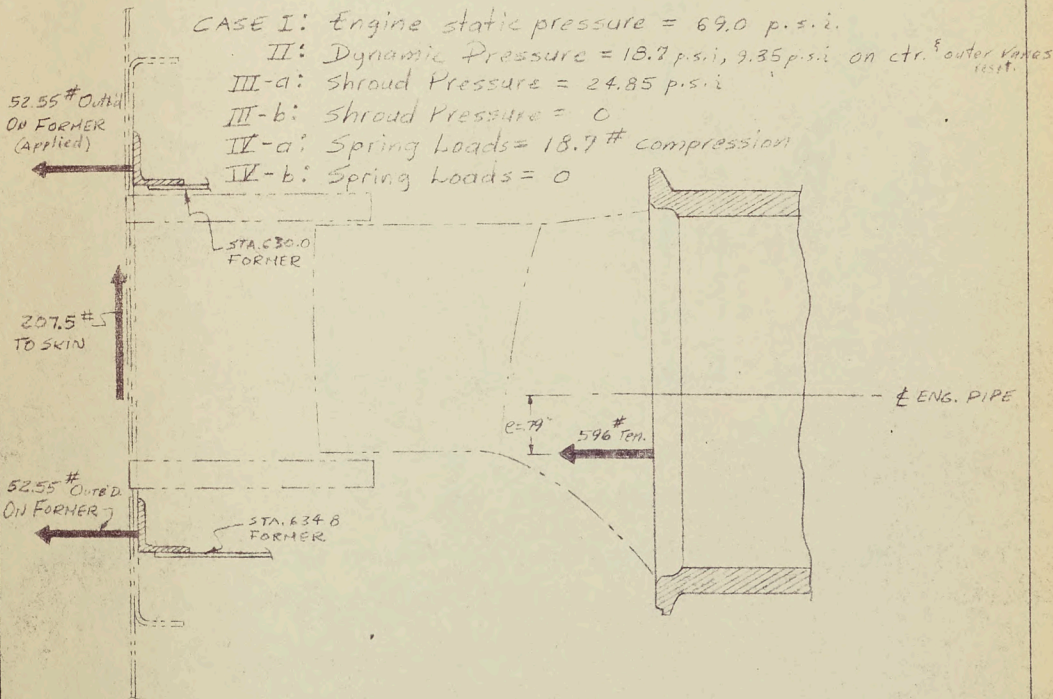 CASE I: Engine static pressure = 69.0 p.s.i.
II: Dynamic Pressure = 18.7 p.s.i, 9.35 p.s.i on ctr. & outer vanes
resp.
III-a: Shroud Pressure = 24.85 p.s.i
III-b: Shroud Pressure = 0
IV-a: Spring Loads = 18.7 # compression
IV-b: Spring Loads = 0
52.55 # Outb'd
ON FORMER
(Applied)
STA. 630.0
FORMER
207.5 #
TO SKIN
℄ ENG. PIPE
e=.79"
596 # Ten.
52.55 # OUTB'D.
ON FORMER
STA. 634.8
FORMER